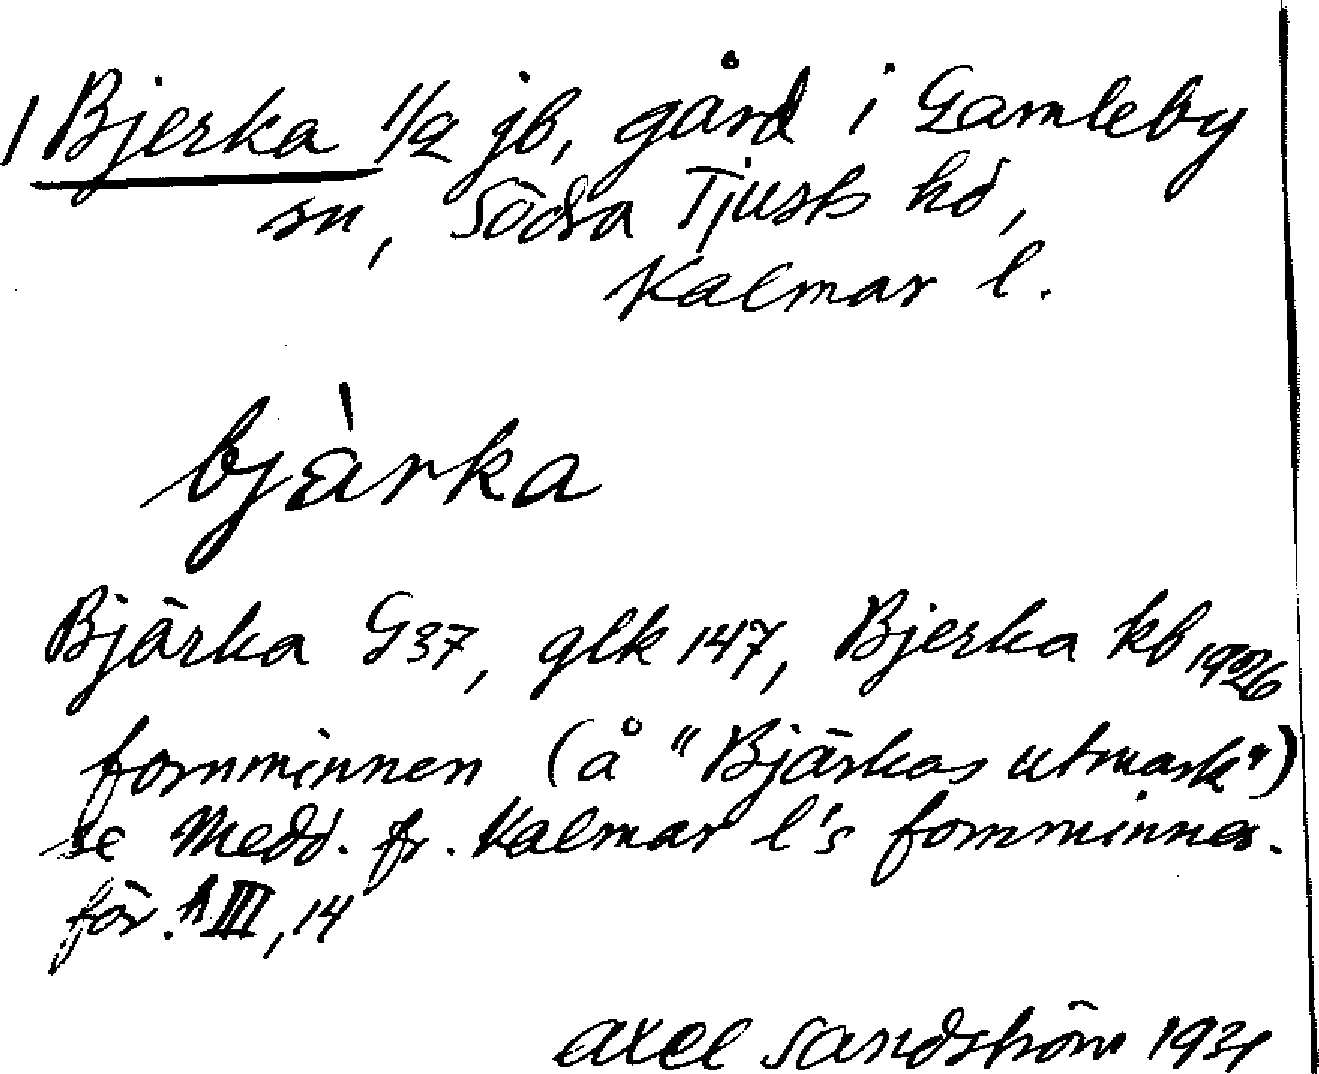 1 Bjerka 1/2 jb, gård i Gamleby
sn, Södra Tjusts hd,
Kalmar l.
bjàrka
Bjärka G37, glk 147, Bjerka kb 1926
fornminnen (å "Bjärkas utmark")
se Medd. fr. Kalmar l's fornminnes.
för. III, 14
Axel Sandström 1931